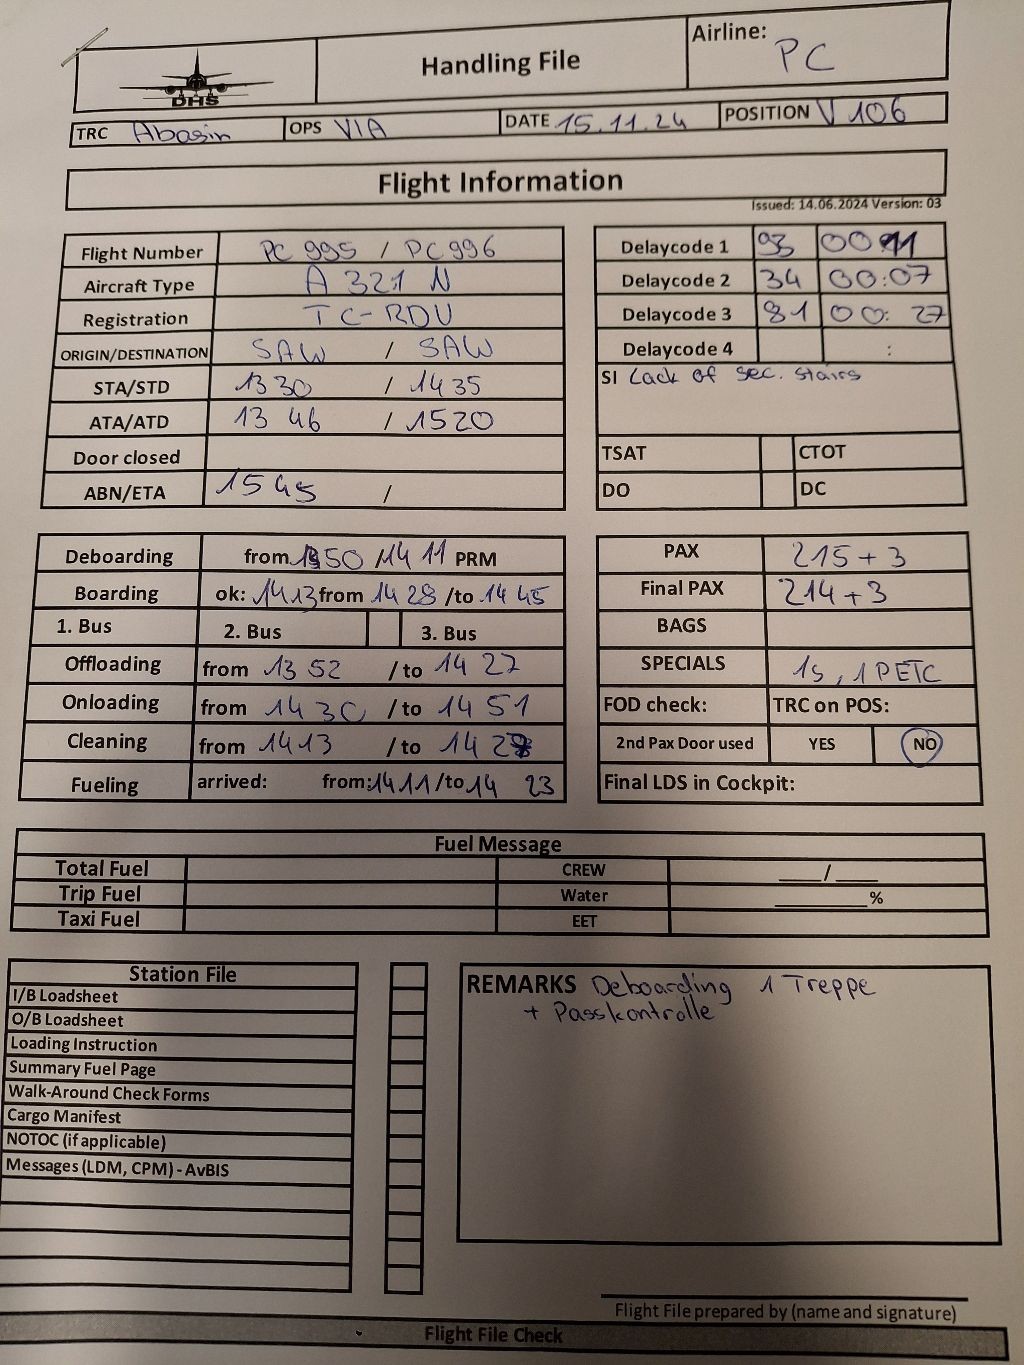 DHS
Handling File
Airline: PC
TRC Abasin OPS VIA DATE 15.11.24 POSITION V 106
Flight Information
Issued: 14.06.2024 Version: 03
Flight Number PC 995 / PC 996
Aircraft Type A 321 N
Registration TC-RDU
ORIGIN/DESTINATION SAW / SAW
STA/STD 13 30 / 14 35
ATA/ATD 13 46 / 15 20
Door closed
ABN/ETA 15 45 /
Delaycode 1 93 00 11
Delaycode 2 34 00:07
Delaycode 3 81 00: 27
Delaycode 4 :
SI Lack of sec. stairs
TSAT CTOT
DO DC
Deboarding from 1350 /14 11 PRM
Boarding ok: 1413 from 14 28 /to 14 45
1. Bus 2. Bus 3. Bus
Offloading from 13 52 /to 14 27
Onloading from 14 30 /to 14 51
Cleaning from 1413 /to 14 28
Fueling arrived: from:1411/to 14 23
PAX 215 + 3
Final PAX 214 + 3
BAGS
SPECIALS 1s, 1 PETC
FOD check: TRC on POS:
2nd Pax Door used YES NO
Final LDS in Cockpit:
Fuel Message
Total Fuel CREW ____/____
Trip Fuel Water ________%
Taxi Fuel EET
Station File
I/B Loadsheet
O/B Loadsheet
Loading Instruction
Summary Fuel Page
Walk-Around Check Forms
Cargo Manifest
NOTOC (if applicable)
Messages (LDM, CPM) - AvBIS
REMARKS Deboarding 1 Treppe
+ Passkontrolle
Flight File prepared by (name and signature)
Flight File Check